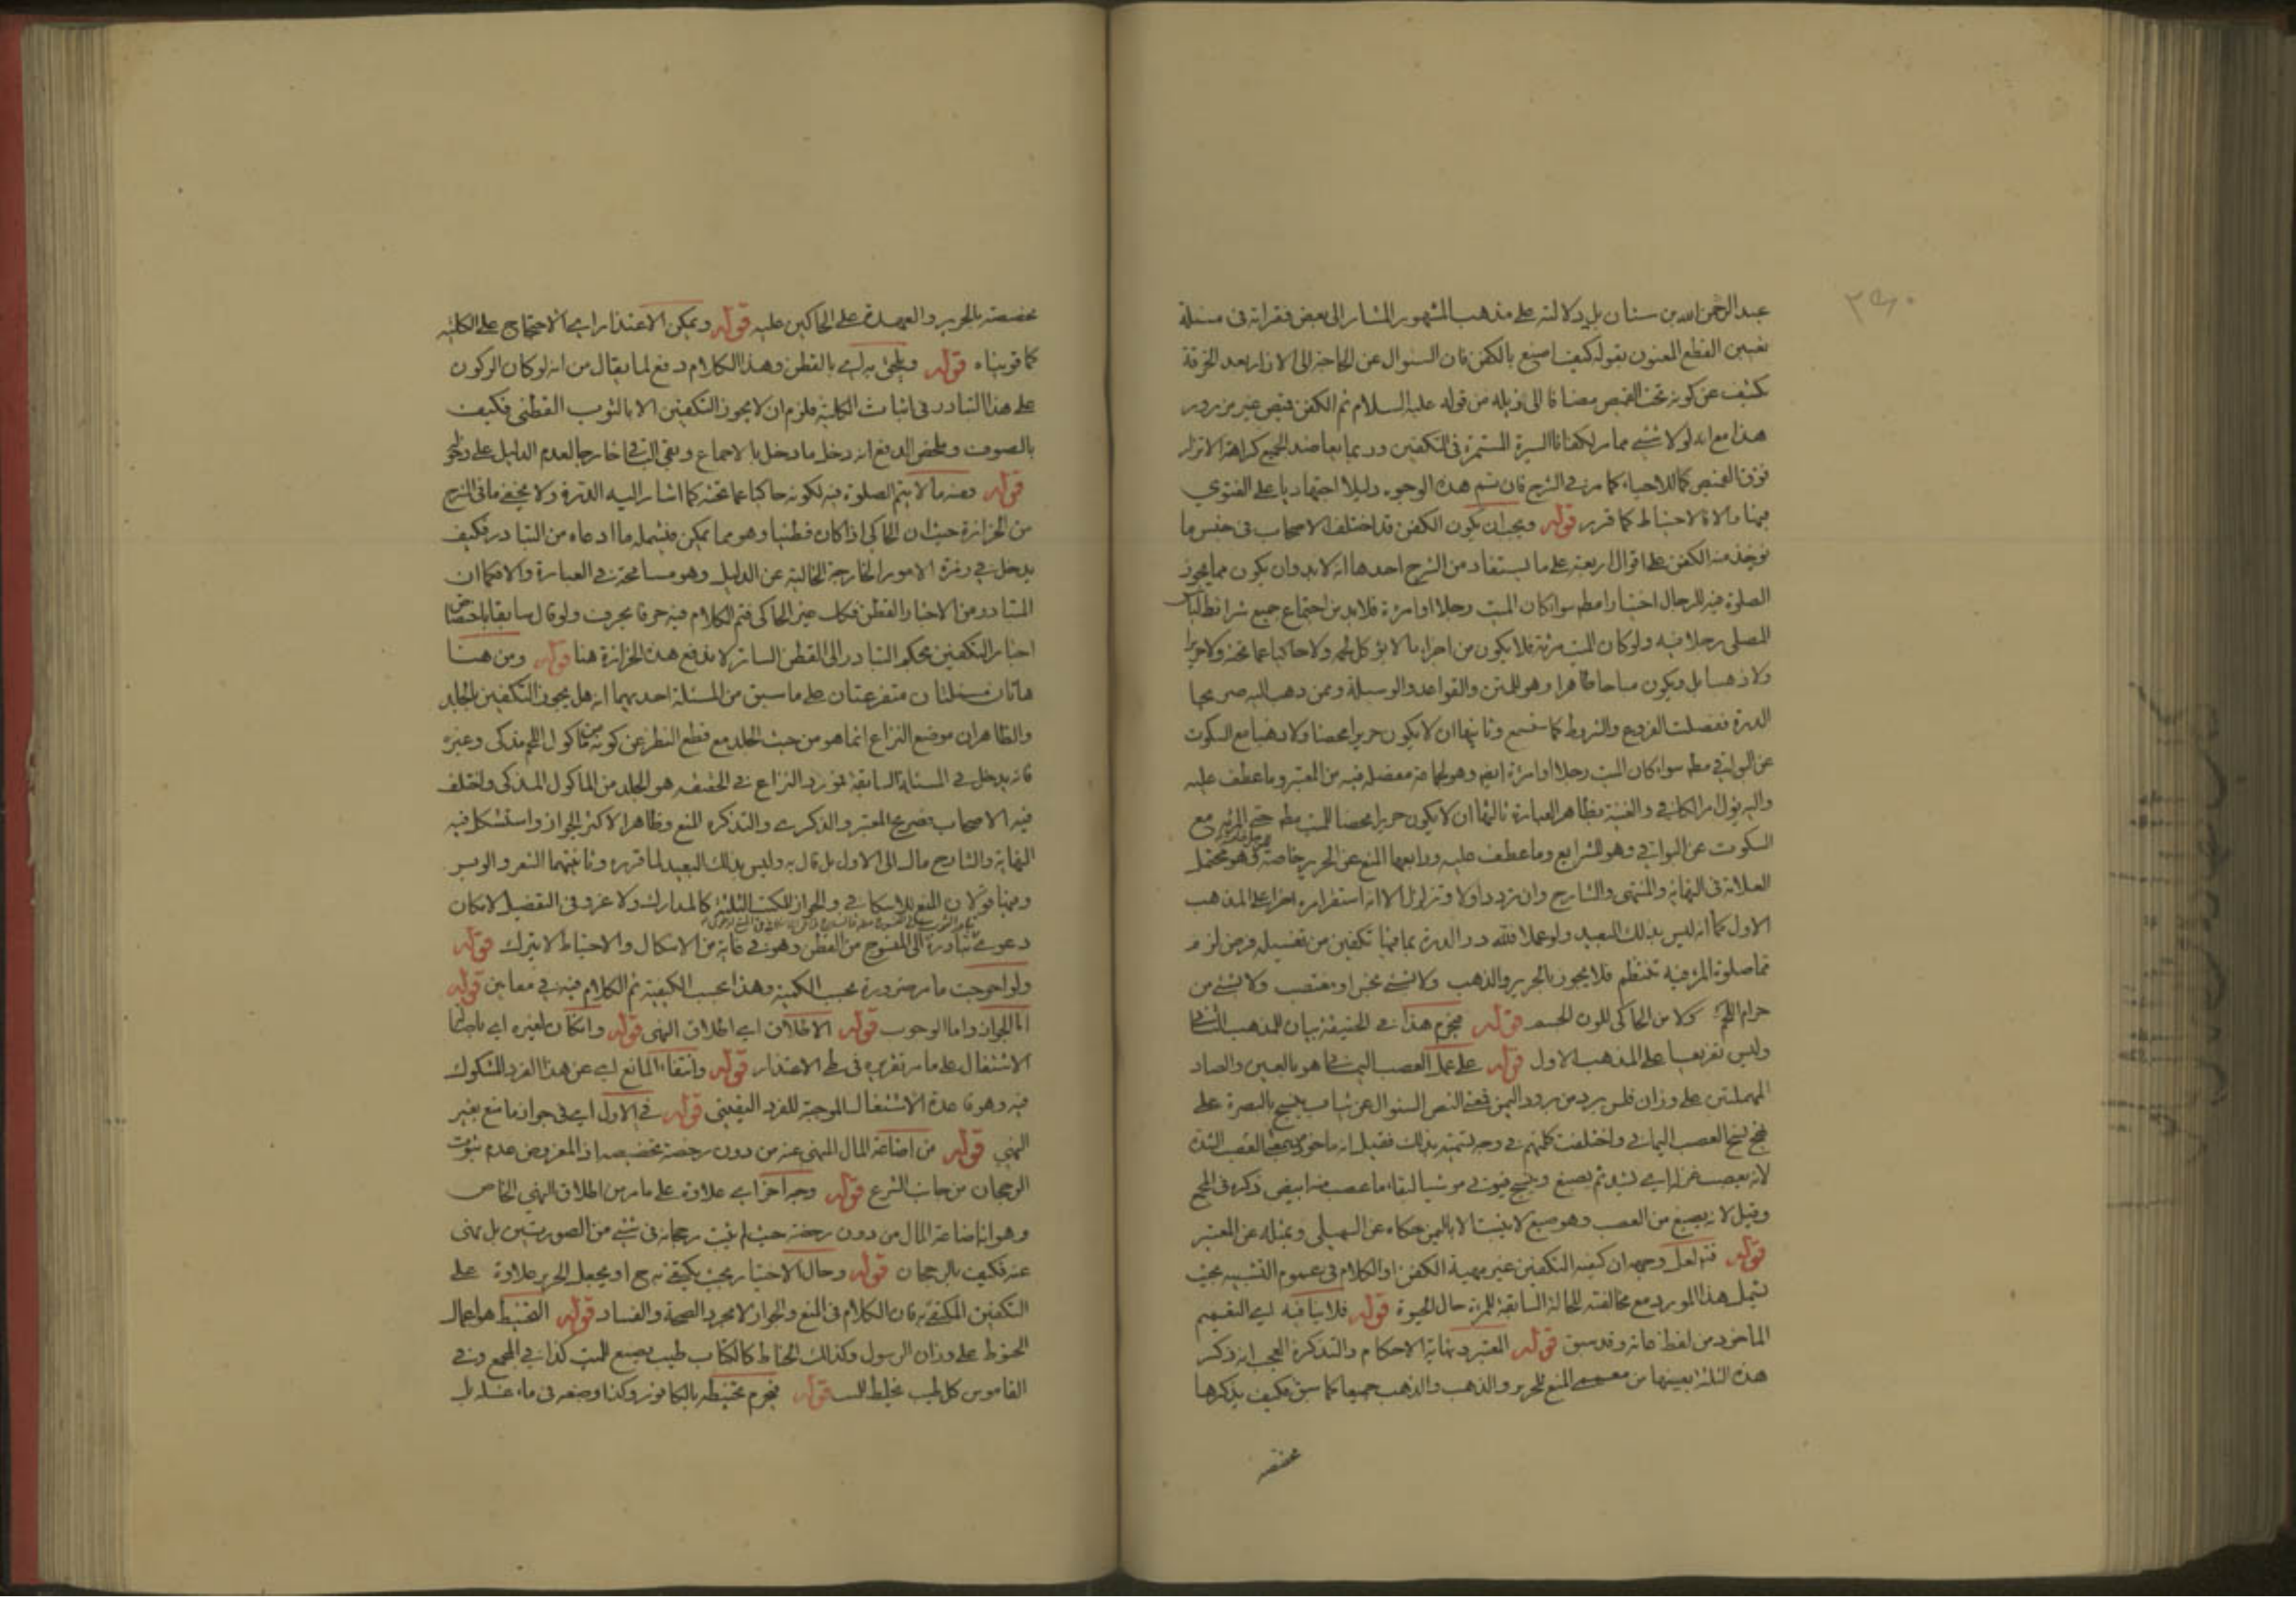 عبد الرحمن الله بن سنان بل دلالته على مذهب المشهور المشار الى بعض فقراته فى مسئلة
تعيين القطع المعنون بقوله كيف اصنع بالكفن فان السئوال عن الحاجة الى الازار بعد الخرقة
كشف عن كونه تحت القميص مضافا الى ذيله من قوله عليه السلام ثم الكفن قميص غير مزرور
هذا مع انه لولا شئ مما مر لكفانا السيرة المستمرة فى التكفين وربما يعاضد الجميع كراهة الاتزار
فوق القميص كما للاحياء كما مر فى الشرح فان تتم هذه الوجوه دليلا اجتهاديا على الفتوى
فبها والا فالاحتياط كما قرر قوله ويجب ان يكون الكفن قد اختلف الاصحاب فى جنس ما
يؤخذ منه الكفن على اقوال اربعة على ما يستفاد من الشرح احدها انه لابد وان يكون مما يجوز
الصلوة فيه للرجال اختيارا مطم سواء كان الميت رجلا او امرءة فلابد من اجتماع جميع شرائط لباس
المصلى رجلا فيه ولو كان الميت مرئة فلا يكون من اجزاء ما لا يؤكل لحمه ولا حاكيا عما تحته ولا حريرا
ولا ذهبا بل ويكون مباحا طاهرا وهو للمتن والقواعد والوسيلة وممن ذهب اليه صريحا
الدرة ففصلت الفروع والشروط كما ستسمع وثانيها ان لا يكون حريرا محضا ولا ذهبا مع السكوت
عن البواقى مطم سواء كان الميت رجلا او امرءة ايضم وهو لجماعة مفصله فيه من المعتبر وما عطف عليه
واليه يؤل مر الكافى والغنية بظاهر العبارة ثالثها ان لا يكون حريرا محضا للميت مطم حتى المرئة مع
السكوت عن البواقى وهو للشرايع وما عطف عليه ورابعها المنع عن الحرير خاصة وهو محتمل
العلامة فى النهاية والمنتهى والشارح وان تردد اولا وتزلزل الا انه استقر امره اخرا على المذهب
الاول كما انه ليس بذلك البعيد ولو عملا فلله در الدرة بما فيها تكفين من تغسيله فرض لزم
فما صلوة المرء فيه تنتظم فلا يجوز بالحرير والذهب ولا بشئ نجس او مغتصب ولا بشئ من
حرام اللحم ولا من الحاكى للون الجسم قوله فيحرم هذا فى الحقيقة بيان للمذهب الثانى
وليس تفريعا على المذهب الاول قوله على عمل العصب اليمانى هو بالعين والصاد
المهملتين على وزان فلس برد من برود اليمن ففى النص السئوال عن ثياب ينسج بالبصرة على
نهج نسج العصب اليمانى واختلفت كلمتهم فى وجه تسميته بذلك فقيل انه ماخوذ من العصب الشدة
لانه يعصب غزله اى يشد ثم يصبغ وينسج فيؤتى موشيا لبقاء ما عصب منه ابيض ذكره فى المجمع
وقيل لانه يصبغ من العصب وهو صبغ لا ينبت الا باليمن حكاه عن السهيلى وبمثله عن المعتبر
قوله فتم لعل وجهه ان كيفية التكفين غير مهية الكفن والكلام فى عموم التشبيه بحيث
تشمل هذا المورد مع مخالفته للحالة السابقة للمرئة حال الحيوة قوله فلا ينافيه اى التعميم
الماخوذ من لفظ عامة وقد سبق قوله المعتبر ونهاية الاحكام والتذكرة العجب انه ذكر
هذه الثلثة بعينها من معممى المنع للحرير والذهب والذهب جميعا كما سبق فكيف يذكرها
مخصصة
مخصصة بالحرير والعهدة على الحاكين عليه قوله ويمكن الاعتذار اى الاحتجاج على الكلية
كما قويناه قوله ويلحق به اى بالقطن وهذا الكلام دفع لما يقال من انه لو كان الركون
على هذا التبادر فى اثبات الكلية فلزم ان لا يجوز التكفين الا بالثوب القطنى فكيف
بالصوف وملخص الدفع انه دخل ما دخل بالاجماع وبقى الباقى خارجا لعدم الدليل على دخوله
قوله ومنه ما لا يتم الصلوة فيه لكونه حاكيا عما تحته كما اشار اليه الدرة ولا يخفى ما فى الشرح
من الحزازة حيث ان الحاكى اذا كان قطنيا وهو مما يمكن فيشمله ما ادعاه من التبادر فكيف
يدخل فى زمرة الامور الخارجة الخالية عن الدليل وهو مسامحة فى العبارة والا فكما ان
المتبادر من الاخبار القطن فكك غير الحاكى فتم الكلام فيه حرفا بحرف ولو قال سابقا باختصاص
اخبار التكفين بحكم التبادر الى القطن الساتر لاندفع هذه الحزازة هنا قوله ومن هنا
هاتان مسئلتان متفرعتان على ما سبق من المسئلة احديهما انه هل يجوز التكفين بالجلد
والظاهر ان موضع النزاع انما هو من حيث الجلد مع قطع النظر عن كونه من ماكول اللحم مذكى وغيره
فانه يدخل فى المسئلة السابقة فمورد النزاع فى الحقيقه هو الجلد من الماكول المذكى واختلف
فيه الاصحاب فصريح المعتبر والذكرى والتذكره المنع وظاهر الاكثر الجواز واستشكل فيه
النهاية والشارح مال الى الاول بل قال به وليس بذلك البعيد لما قرره وثانيتهما الشعر والوبر
وفيها قولان المنع للاسكافى والجواز للكتب الثلثة كالمدارك ولا غرو فى التفصيل لامكان
دعوى تبادره الى المنسوج من القطن وهو فى غاية من الاشكال والاحتياط لا يترك قوله
ولو احوجت ما مر ضرورة بحسب الكمية وهذا بحسب الكيفية ثم الكلام فيه فى مقامين قوله
اما الجواز واما الوجوب قوله الاطلاق اى اطلاق النهى قوله وان كان لغيره اى باصالة
الاشتغال على ما مر تقريره فى طى الاعتذار قوله وانتفاء المانع اى عن هذا الفرد المشكوك
فيه وهو قاعدة الاشتغال الموجبة للفرد اليقينى قوله فى الاول اى فى جواز ما منع بغير
النهى قوله من اضاعة المال المنهى عنه من دون رخصة تخصيصه اذ المفروض عدم ثبوت
الرجحان من جانب الشرع قوله وجه آخر اى علاوة على ما مر من اطلاق النهى الخاص
وهو اضاعة المال من دون رخصة حيث لم يثبت رجحانه فى شئ من الصورتين بل نهى
عنه فكيف بالرجحان قوله وحال الاختيار بحيث يكتفى به ح او يجعل الحرير علاوة على
التكفين المكتفى به فان الكلام فى المنع والجواز لا مجرد الصحة والفساد قوله التحنيط هو اعمال
الحنوط على وزان الرسول وكذلك الحناط كالكتاب طيب يصنع للميت كذا فى المجمع وفى
القاموس كل طيب يخلط للميت قوله فيحرم تحنيطه بالكافور وكذا وضعه فى ماء غسله بل